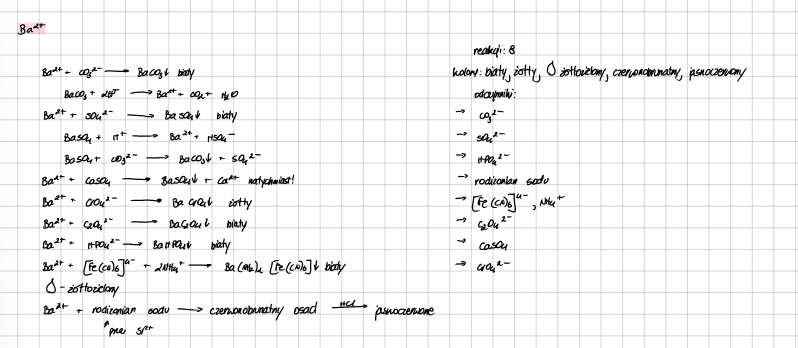 Ba²⁺
Ba²⁺ + CO₃²⁻ → BaCO₃↓ biały
BaCO₃ + 2H⁺ → Ba²⁺ + CO₂ + H₂O
Ba²⁺ + SO₄²⁻ → BaSO₄↓ biały
BaSO₄ + H⁺ → Ba²⁺ + HSO₄⁻
BaSO₄ + CO₃²⁻ → BaCO₃↓ + SO₄²⁻
Ba²⁺ + CaSO₄ → BaSO₄↓ + Ca²⁺ natychmiast!
Ba²⁺ + CrO₄²⁻ → BaCrO₄↓ żółty
Ba²⁺ + C₂O₄²⁻ → BaC₂O₄↓ biały
Ba²⁺ + HPO₄²⁻ → BaHPO₄↓ biały
Ba²⁺ + [Fe(CN)₆]⁴⁻ + 2NH₄⁺ → Ba(NH₄)₂[Fe(CN)₆]↓ biały
- żółtozielony
Ba²⁺ + rodizonian sodu → czerwonobrunatny osad HCl → jasnoczerwone
Sr²⁺
reakcji: 8
kolory: biały, żółty, żółtozielony, czerwonobrunatny, jasnoczerwony
odczynniki:
→ CO₃²⁻
→ SO₄²⁻
→ HPO₄²⁻
→ rodizonian sodu
→ [Fe(CN)₆]⁴⁻, NH₄⁺
→ C₂O₄²⁻
→ CaSO₄
→ CrO₄²⁻